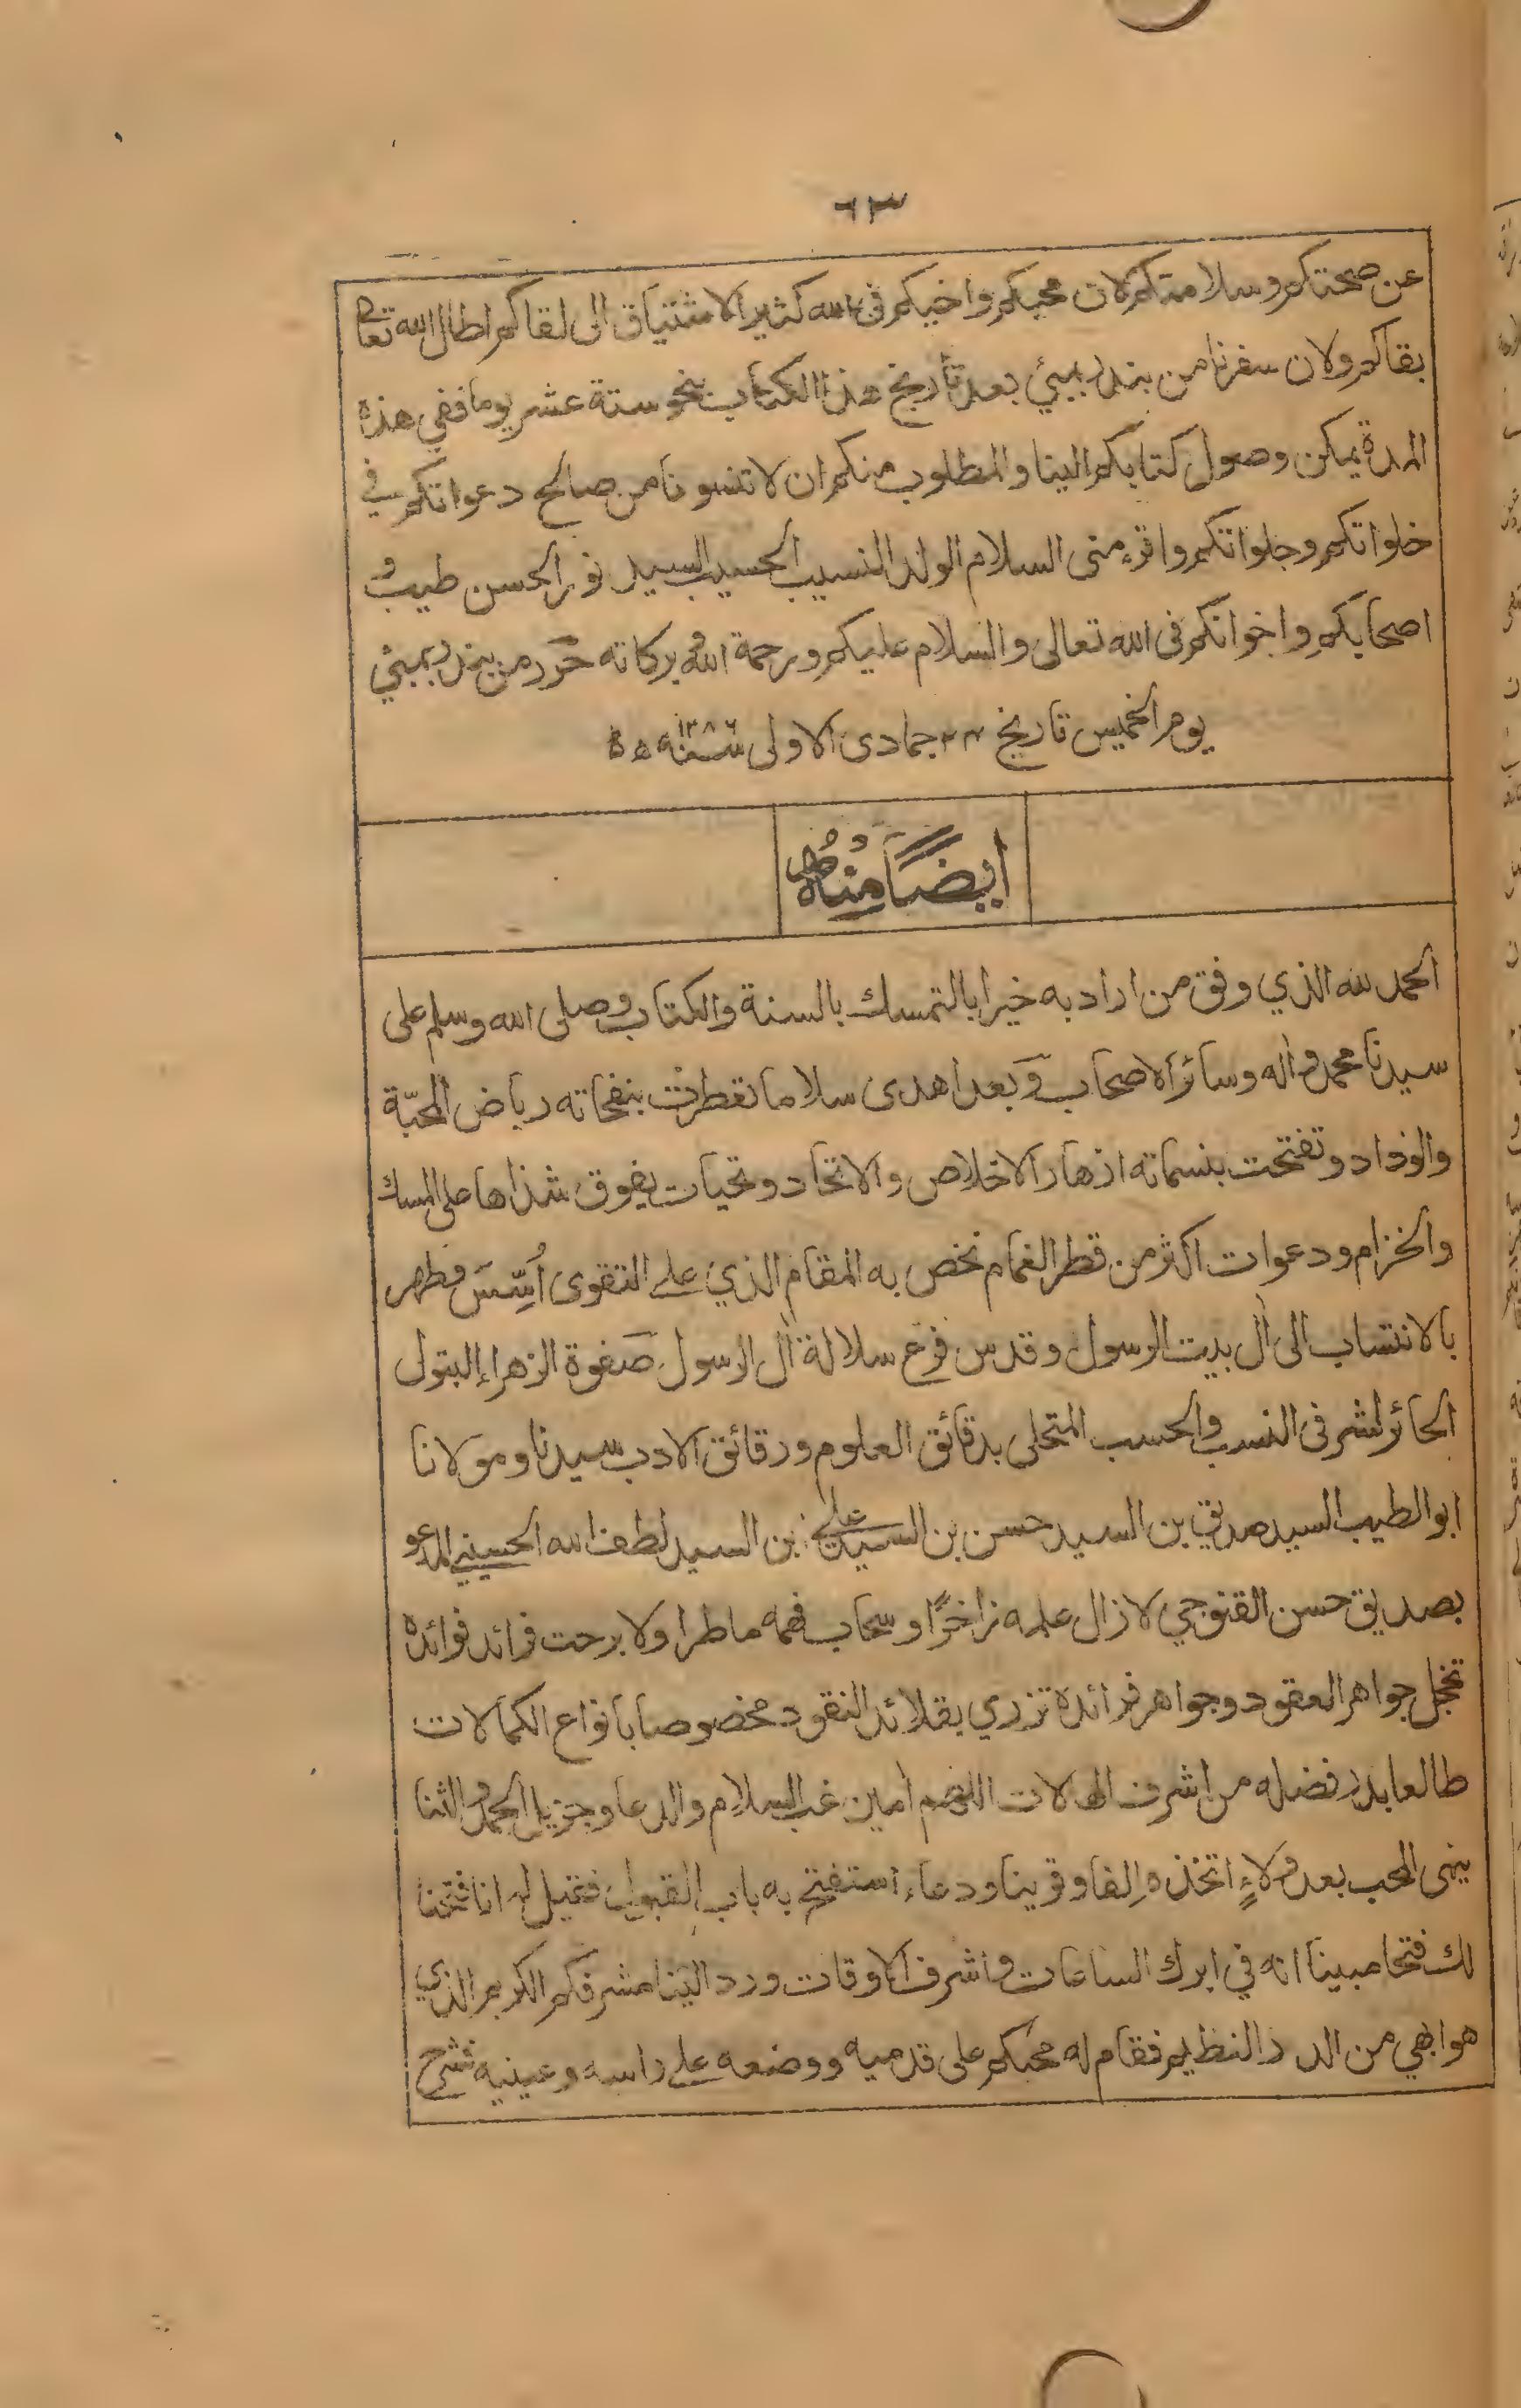 ٦٣
عن صحتكم وسلامتكم لان محبكم واخيكم فى الله كثير الاشتياق الى لقاكم اطال الله تعالى
بقاكم ولان سفرنا من بندر بمبئي بعد تأريخ هذا الكتاب بنحو ستة عشر يوما ففي هذه
المدة يمكن وصول كتابكم الينا والمطلوب منكم ان لا تنسونا من صالح دعواتكم في
خلواتكم وجلواتكم واقرء منى السلام الولد النسيب الحسيب السيد نور الحسن طيب و
اصحابكم واخوانكم فى الله تعالى والسلام عليكم ورحمة الله وبركاته حُرّر من بندر بمبئي
يوم الخميس تاريخ جمادى الاولى سنة ١٢٨٦ ه
ايضًا منه
الحمد لله الذي وفق من اراد به خيرا بالتمسك بالسنة والكتاب وصلى الله وسلم على
سيدنا محمد واله وسائر الاصحاب وَبعد اهدى سلاما تقطرت بنفحاته رياض المحبّة
والوداد وتفتحت بنسماته ازهار الاخلاص والاتحاد وتحيات يفوق شذاها على المسك
والخزام ودعوات اكثر من قطر الغمام نخص به المقام الذي على التقوى اُسِّسَ وطهر
بالانتساب الى اٰل بيت الرسول وقدس فرع سلالة اٰل الرسول صَفوة الزهراء البتول
الحائز لشرفى النسب والحسب المتحلى بدقائق العلوم ورقائق الادب سيدنا ومولانا
ابو الطيب السيد صديق بن السيد حسن بن السيد علي بن السيد لطف الله الحسيني المدعو
بصديق حسن القنوجي لا زال علمه زاخرًا وسحاب فهمه ماطرا ولا برحت فرائد فوائده
تخجل جواهر العقود وجواهر فرائده تزري بقلائد النقود مخصوصا بانواع الكمالات
طالعا بدر فضله من اشرف الهالات اللهم اٰمين غب السلام والدعا وجزيل الحمد والثنا
ينهى المحب بعد ولاءٍ اتخذه اِلفا وقرينا ودعاء استفتح به باب القبول فقيل له انا فتحنا
لك فتحا مبينا انه في ابرك الساعات واشرف الاوقات ورد الينا مشرفكم الكريم الذي
هو ابهي من الدر النظيم فقام له محبكم على قدميه ووضعه على راسه وعينيه فشرح